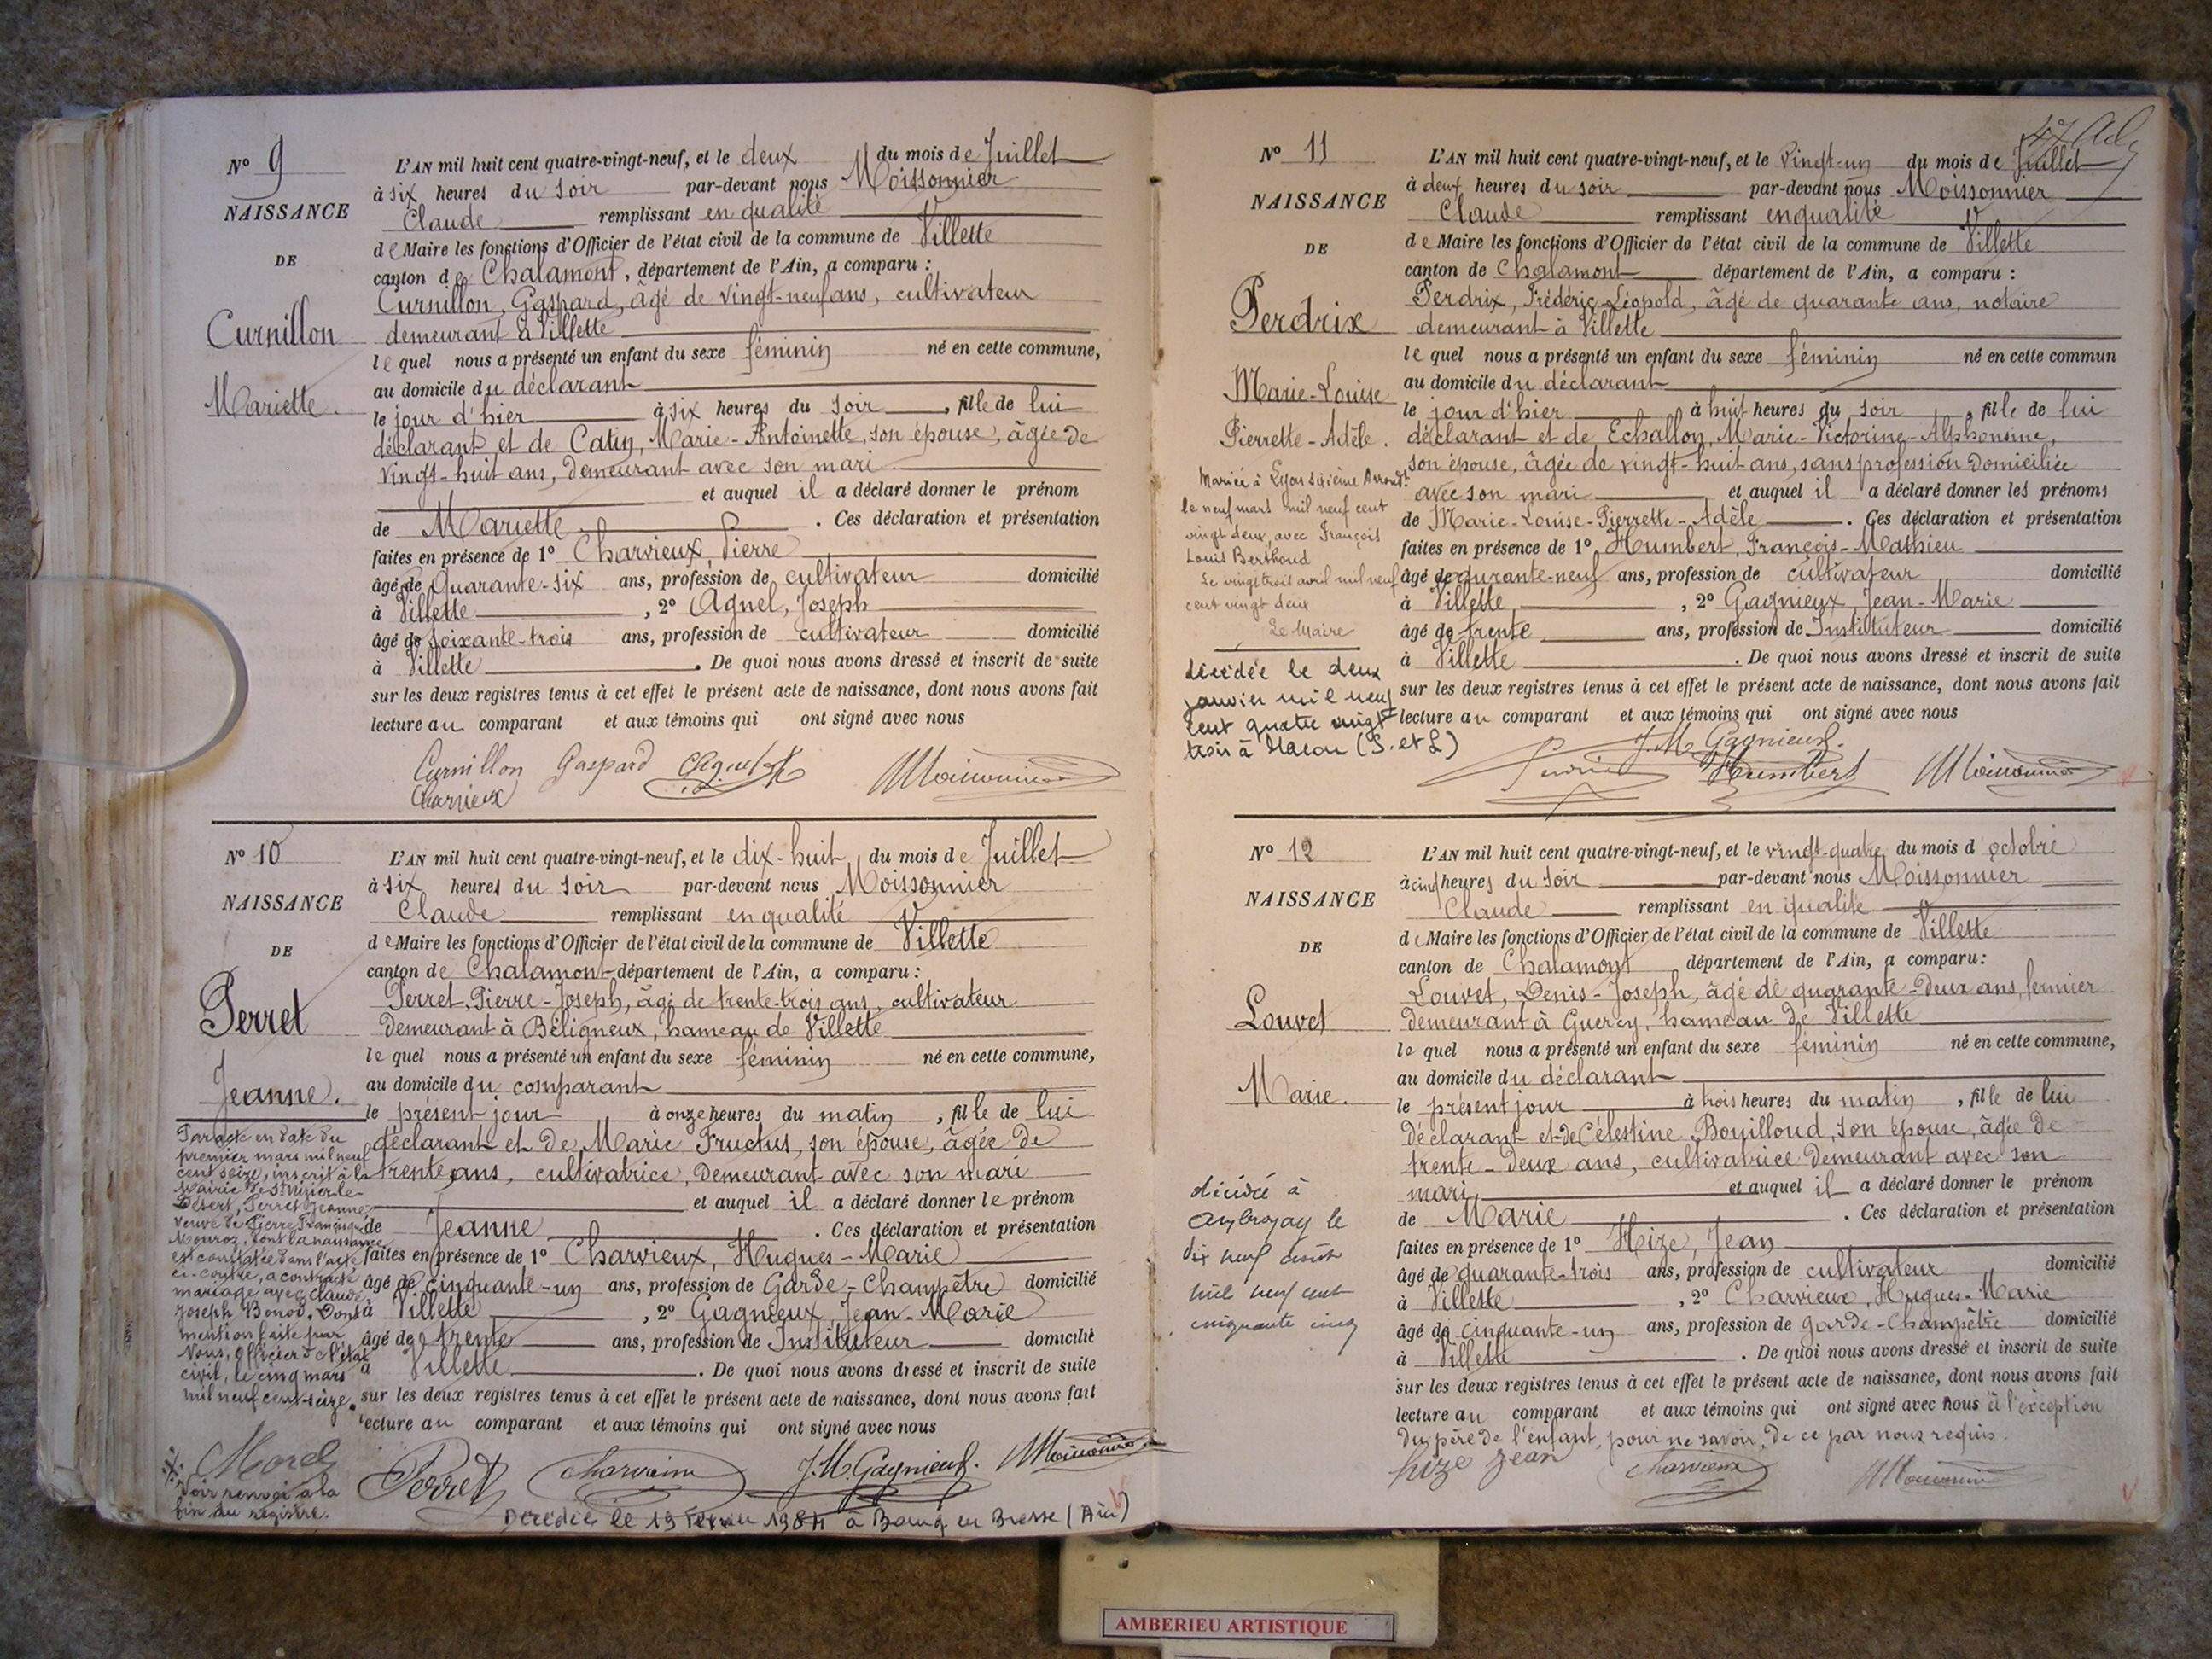 N° 9
NAISSANCE
DE
Curnillon
Mariette.
L'AN mil huit cent quatre-vingt-neuf, et le deux du mois de Juillet
à six heures du soir par-devant nous Moissonnier
Claude remplissant en qualité
de Maire les fonctions d'Officier de l'état civil de la commune de Villette
canton de Chalamont, département de l'Ain, a comparu :
Curnillon, Gaspard, âgé de vingt-neuf ans, cultivateur
demeurant à Villette
lequel nous a présenté un enfant du sexe féminin né en cette commune,
au domicile du déclarant
le jour d'hier à six heures du soir, fille de lui
déclarant et de Catin, Marie-Antoinette, son épouse, âgée de
vingt-huit ans, demeurant avec son mari
et auquel il a déclaré donner le prénom
de Mariette. . Ces déclaration et présentation
faites en présence de 1° Charvieux, Pierre
âgé de Quarante-six ans, profession de cultivateur domicilié
à Villette , 2° Agnel, Joseph
âgé de soixante-trois ans, profession de cultivateur domicilié
à Villette . De quoi nous avons dressé et inscrit de suite
sur les deux registres tenus à cet effet le présent acte de naissance, dont nous avons fait
lecture au comparant et aux témoins qui ont signé avec nous
Curnillon Gaspard Agnel Moissonnier
Charvieux
N° 10
NAISSANCE
DE
Perret
Jeanne.
Par acte en date du
premier mars mil neuf
cent seize, inscrit à la
Mairie de St Nizier-le-
Désert, Perret Jeanne
veuve de Pierre François
Mouroz, dont la naissance
est constatée dans l'acte
ci-contre, a contracté
mariage avec Claude
Joseph Bonod. Dont
mention faite par
Nous, officier de l'état
civil, le cinq mars
mil neuf cent seize.
Morel
Voir renvoi à la
fin du registre.
L'AN mil huit cent quatre-vingt-neuf, et le dix-huit du mois de Juillet
à six heures du soir par-devant nous Moissonnier
Claude remplissant en qualité
de Maire les fonctions d'Officier de l'état civil de la commune de Villette
canton de Chalamont département de l'Ain, a comparu :
Perret, Pierre-Joseph, âgé de trente-trois ans, cultivateur
demeurant à Béligneux, hameau de Villette
lequel nous a présenté un enfant du sexe féminin né en cette commune,
au domicile du comparant
le présent jour à onze heures du matin , fille de lui
déclarant et de Marie Fructus, son épouse, âgée de
trente ans, cultivatrice, demeurant avec son mari
et auquel il a déclaré donner le prénom
de Jeanne . Ces déclaration et présentation
faites en présence de 1° Charvieux, Hugues-Marie
âgé de cinquante-un ans, profession de Garde-Champêtre domicilié
à Villette , 2° Gagnieux, Jean-Marie
âgé de trente ans, profession de Instituteur domicilié
à Villette . De quoi nous avons dressé et inscrit de suite
sur les deux registres tenus à cet effet le présent acte de naissance, dont nous avons fait
lecture au comparant et aux témoins qui ont signé avec nous
Perret Charvieux J.M. Gagnieux. Moissonnier
Décédée le 19 février 1984 à Bourg en Bresse (Ain)
N° 11
NAISSANCE
DE
Perdrix
Marie-Louise
Pierrette-Adèle.
Mariée à Lyon sixième Arrondt
le neuf mars mil neuf cent
vingt deux, avec François
Louis Berthoud
Le vingt trois avril mil neuf
cent vingt deux
Le Maire
décédée le deux
janvier mil neuf
cent quatre vingt
trois à Macon (S. et L)
L'AN mil huit cent quatre-vingt-neuf, et le Vingt-un du mois de Juillet
à deux heures du soir par-devant nous Moissonnier
Claude remplissant en qualité
de Maire les fonctions d'Officier de l'état civil de la commune de Villette
canton de Chalamont département de l'Ain, a comparu :
Perdrix, Frédéric-Léopold, âgé de quarante ans, notaire
demeurant à Villette
lequel nous a présenté un enfant du sexe féminin né en cette commun
au domicile du déclarant
le jour d'hier à huit heures du soir , fille de lui
déclarant et de Echallon, Marie-Victorine-Alphonsine,
son épouse, âgée de vingt-huit ans, sans profession domiciliée
avec son mari et auquel il a déclaré donner les prénoms
de Marie-Louise-Pierrette-Adèle . Ces déclaration et présentation
faites en présence de 1° Humbert, François-Mathieu
âgé de quarante-neuf ans, profession de cultivateur domicilié
à Villette , 2° Gagnieux, Jean-Marie
âgé de trente ans, profession de Instituteur domicilié
à Villette . De quoi nous avons dressé et inscrit de suite
sur les deux registres tenus à cet effet le présent acte de naissance, dont nous avons fait
lecture au comparant et aux témoins qui ont signé avec nous
J.M. Gagnieux.
Perdrix Humbert Moissonnier
N° 12
NAISSANCE
DE
Louvet
Marie.
décédée à
Ambronay le
dix neuf août
mil neuf cent
cinquante cinq
L'AN mil huit cent quatre-vingt-neuf, et le vingt-quatre du mois d'octobre
à cinq heures du soir par-devant nous Moissonnier
Claude remplissant en qualité
de Maire les fonctions d'Officier de l'état civil de la commune de Villette
canton de Chalamont département de l'Ain, a comparu :
Louvet, Denis-Joseph, âgé de quarante-deux ans, fermier
demeurant à Guercy, hameau de Villette
lequel nous a présenté un enfant du sexe féminin né en cette commune,
au domicile du déclarant
le présent jour à trois heures du matin , fille de lui
déclarant et de Célestine Bouilloud, son épouse, âgée de
trente-deux ans, cultivatrice demeurant avec son
mari, et auquel il a déclaré donner le prénom
de Marie . Ces déclaration et présentation
faites en présence de 1° Hize, Jean
âgé de quarante-trois ans, profession de cultivateur domicilié
à Villette , 2° Charvieux, Hugues-Marie
âgé de cinquante-un ans, profession de garde-champêtre domicilié
à Villette . De quoi nous avons dressé et inscrit de suite
sur les deux registres tenus à cet effet le présent acte de naissance, dont nous avons fait
lecture au comparant et aux témoins qui ont signé avec nous à l'exception
du père de l'enfant, pour ne savoir, de ce par nous requis.
hize Jean Charvieux Moissonnier
AMBERIEU ARTISTIQUE